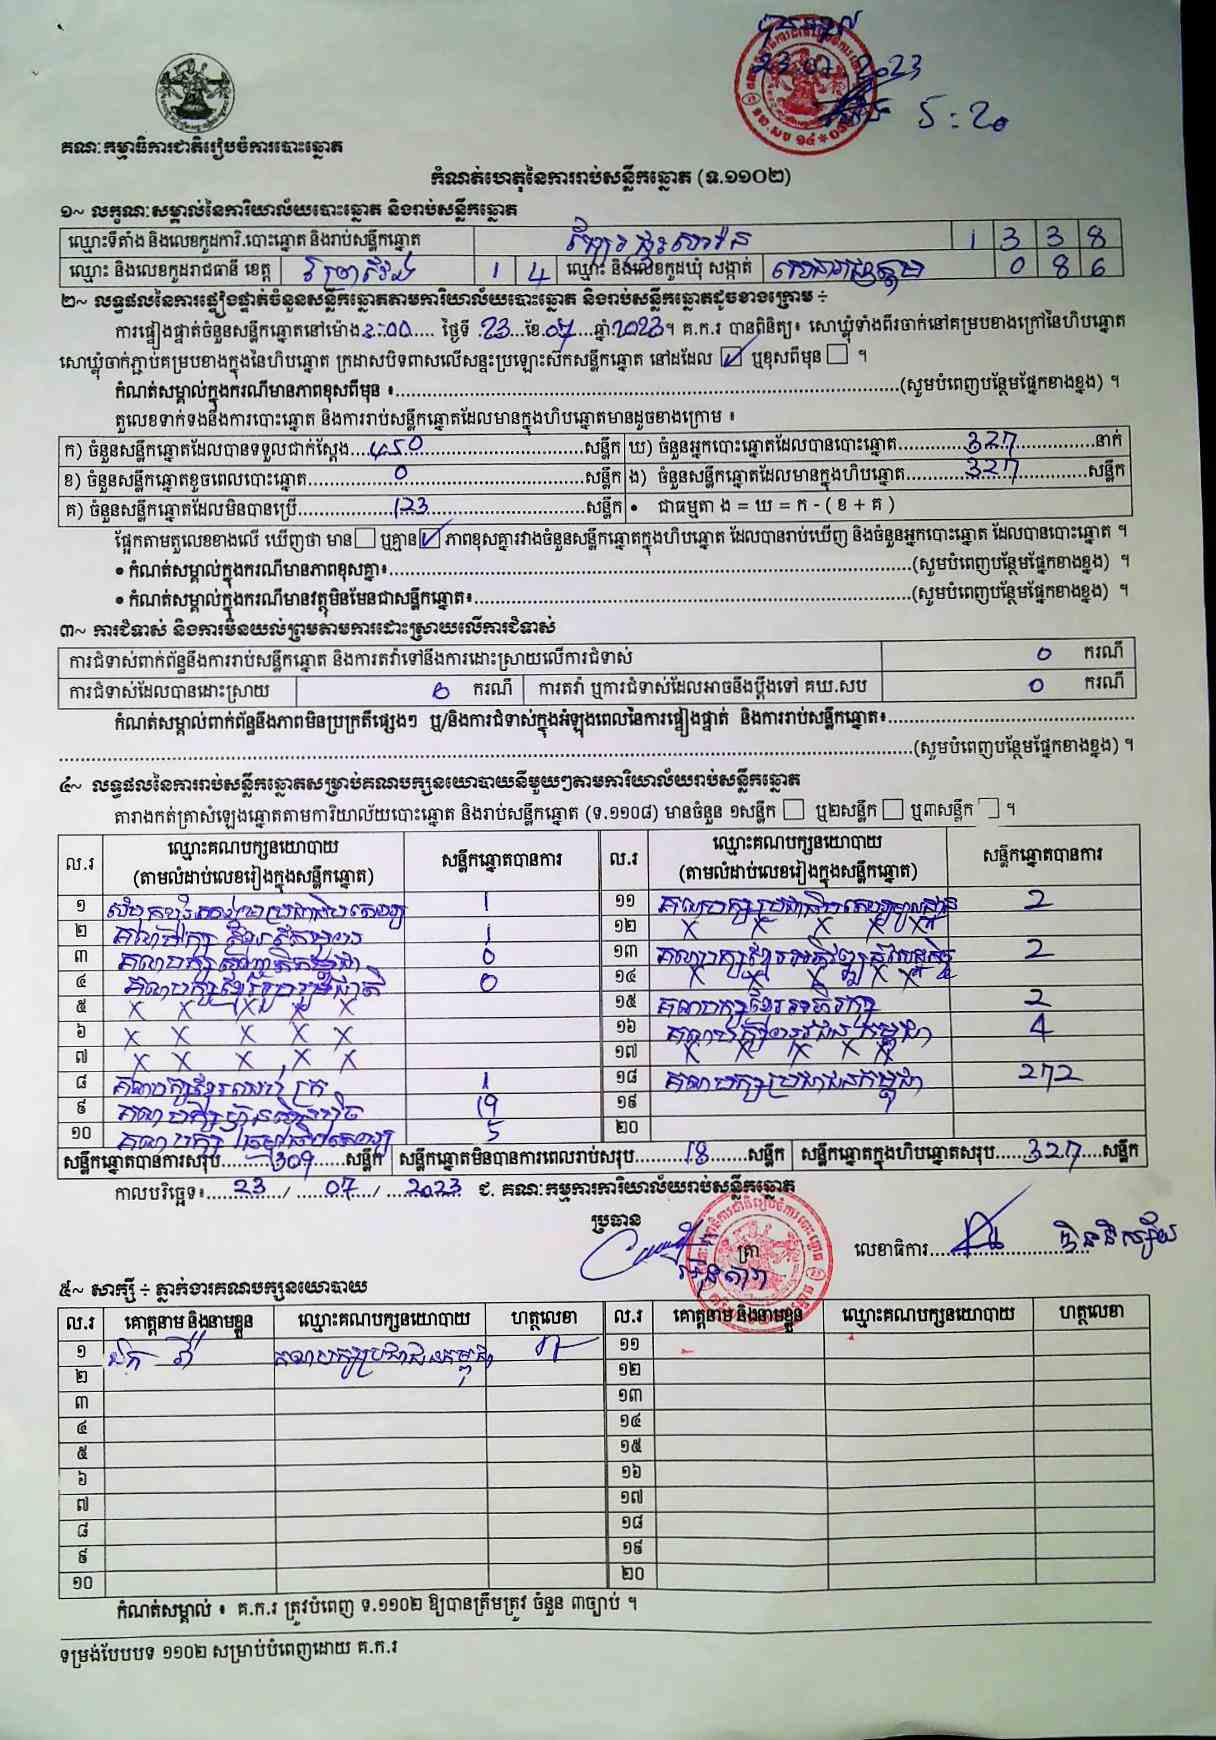 23.07.2023
5:20
គណៈកម្មាធិការជាតិរៀបចំការបោះឆ្នោត
កំណត់ហេតុនៃការរាប់សន្លឹកឆ្នោត (ទ.១១០២)
១~ លក្ខណៈសម្គាល់នៃការិយាល័យបោះឆ្នោត និងរាប់សន្លឹកឆ្នោត
ឈ្មោះទីតាំង និងលេខកូដការិ.បោះឆ្នោត និងរាប់សន្លឹកឆ្នោត 1 3 3 8
ឈ្មោះ និងលេខកូដរាជធានី ខេត្ត ព្រៃវែង 1 4 ឈ្មោះ និងលេខកូដឃុំ សង្កាត់ 0 8 6
២~ លទ្ធផលនៃការផ្ទៀងផ្ទាត់ចំនួនសន្លឹកឆ្នោតតាមការិយាល័យបោះឆ្នោត និងរាប់សន្លឹកឆ្នោតដូចខាងក្រោម ÷
ការផ្ទៀងផ្ទាត់ចំនួនសន្លឹកឆ្នោតនៅម៉ោង 3:00 ថ្ងៃទី 23 ខែ 07 ឆ្នាំ 2023។ គ.ក.រ បានពិនិត្យ៖ សោឃ្លុំទាំងពីរចាក់នៅគម្របខាងក្រៅនៃហិបឆ្នោត
សោឃ្លុំចាក់ភ្ជាប់គម្របខាងក្នុងនៃហិបឆ្នោត ក្រដាសបិទពាសលើសន្ទះប្រឡោះស៊កសន្លឹកឆ្នោត នៅដដែល ☑ ឬខុសពីមុន ☐ ។
កំណត់សម្គាល់ក្នុងករណីមានភាពខុសពីមុន ៖..........(សូមបំពេញបន្ថែមផ្នែកខាងខ្នង) ។
តួលេខទាក់ទងនឹងការបោះឆ្នោត និងការរាប់សន្លឹកឆ្នោតដែលមានក្នុងហិបឆ្នោតមានដូចខាងក្រោម ៖
ក) ចំនួនសន្លឹកឆ្នោតដែលបានទទួលជាក់ស្តែង 450 សន្លឹក ឃ) ចំនួនអ្នកបោះឆ្នោតដែលបានបោះឆ្នោត 327 នាក់
ខ) ចំនួនសន្លឹកឆ្នោតខូចពេលបោះឆ្នោត 0 សន្លឹក ង) ចំនួនសន្លឹកឆ្នោតដែលមានក្នុងហិបឆ្នោត 327 សន្លឹក
គ) ចំនួនសន្លឹកឆ្នោតដែលមិនបានប្រើ 123 សន្លឹក • ជាធម្មតា ង = ឃ = ក - ( ខ + គ )
ផ្អែកតាមតួលេខខាងលើ ឃើញថា មាន ☐ ឬគ្មាន ☑ ភាពខុសគ្នារវាងចំនួនសន្លឹកឆ្នោតក្នុងហិបឆ្នោត ដែលបានរាប់ឃើញ និងចំនួនអ្នកបោះឆ្នោត ដែលបានបោះឆ្នោត ។
• កំណត់សម្គាល់ក្នុងករណីមានភាពខុសគ្នា៖..........(សូមបំពេញបន្ថែមផ្នែកខាងខ្នង) ។
• កំណត់សម្គាល់ក្នុងករណីមានវត្ថុមិនមែនជាសន្លឹកឆ្នោត៖..........(សូមបំពេញបន្ថែមផ្នែកខាងខ្នង) ។
៣~ ការជំទាស់ និងការមិនយល់ព្រមតាមការដោះស្រាយលើការជំទាស់
ការជំទាស់ពាក់ព័ន្ធនឹងការរាប់សន្លឹកឆ្នោត និងការតវ៉ាទៅនឹងការដោះស្រាយលើការជំទាស់ 0 ករណី
ការជំទាស់ដែលបានដោះស្រាយ 0 ករណី ការតវ៉ា ឬការជំទាស់ដែលអាចនឹងប្តឹងទៅ គឃ.សប 0 ករណី
កំណត់សម្គាល់ពាក់ព័ន្ធនឹងភាពមិនប្រក្រតីផ្សេងៗ ឬ/និងការជំទាស់ក្នុងអំឡុងពេលនៃការផ្ទៀងផ្ទាត់ និងការរាប់សន្លឹកឆ្នោត៖..........
..........(សូមបំពេញបន្ថែមផ្នែកខាងខ្នង) ។
៤~ លទ្ធផលនៃការរាប់សន្លឹកឆ្នោតសម្រាប់គណបក្សនយោបាយនីមួយៗតាមការិយាល័យរាប់សន្លឹកឆ្នោត
តារាងកត់ត្រាសំឡេងឆ្នោតតាមការិយាល័យបោះឆ្នោត និងរាប់សន្លឹកឆ្នោត (ទ.១១០៨) មានចំនួន ១សន្លឹក ☐ ឬ២សន្លឹក ☐ ឬ៣សន្លឹក ☐ ។
ល.រ ឈ្មោះគណបក្សនយោបាយ (តាមលំដាប់លេខរៀងក្នុងសន្លឹកឆ្នោត) សន្លឹកឆ្នោតបានការ ល.រ ឈ្មោះគណបក្សនយោបាយ (តាមលំដាប់លេខរៀងក្នុងសន្លឹកឆ្នោត) សន្លឹកឆ្នោតបានការ
១ 1 ១១ គណបក្សប្រជាធិបតេយ្យមូលដ្ឋាន 2
២ 1 ១២ X X X X X
៣ 0 ១៣ 2
៤ គណបក្សខ្មែររួបរួមជាតិ 0 ១៤ X X X X X
៥ X X X X X ១៥ គណបក្សខ្មែរអភិរក្ស 2
៦ X X X X X ១៦ គណបក្សយុវជនកម្ពុជា 4
៧ X X X X X ១៧ X X X X X
៨ គណបក្សខ្មែរឈប់ក្រ 1 ១៨ គណបក្សប្រជាជនកម្ពុជា 272
៩ គណបក្សហ៊្វុនស៊ិនប៉ិច 19 ១៩
១០ 5 ២០
សន្លឹកឆ្នោតបានការសរុប 309 សន្លឹក សន្លឹកឆ្នោតមិនបានការពេលរាប់សរុប 18 សន្លឹក សន្លឹកឆ្នោតក្នុងហិបឆ្នោតសរុប 327 សន្លឹក
កាលបរិច្ឆេទ៖ 23 / 07 / 2023 ជ. គណៈកម្មការការិយាល័យរាប់សន្លឹកឆ្នោត
ប្រធាន ត្រា លេខាធិការ
៥~ សាក្សី ÷ ភ្នាក់ងារគណបក្សនយោបាយ
ល.រ គោត្តនាម និងនាមខ្លួន ឈ្មោះគណបក្សនយោបាយ ហត្ថលេខា ល.រ គោត្តនាម និងនាមខ្លួន ឈ្មោះគណបក្សនយោបាយ ហត្ថលេខា
១ គណបក្សប្រជាជនកម្ពុជា ១១
២ ១២
៣ ១៣
៤ ១៤
៥ ១៥
៦ ១៦
៧ ១៧
៨ ១៨
៩ ១៩
១០ ២០
កំណត់សម្គាល់ ៖ គ.ក.រ ត្រូវបំពេញ ទ.១១០២ ឱ្យបានត្រឹមត្រូវ ចំនួន ៣ច្បាប់ ។
ទម្រង់បែបបទ ១១០២ សម្រាប់បំពេញដោយ គ.ក.រ